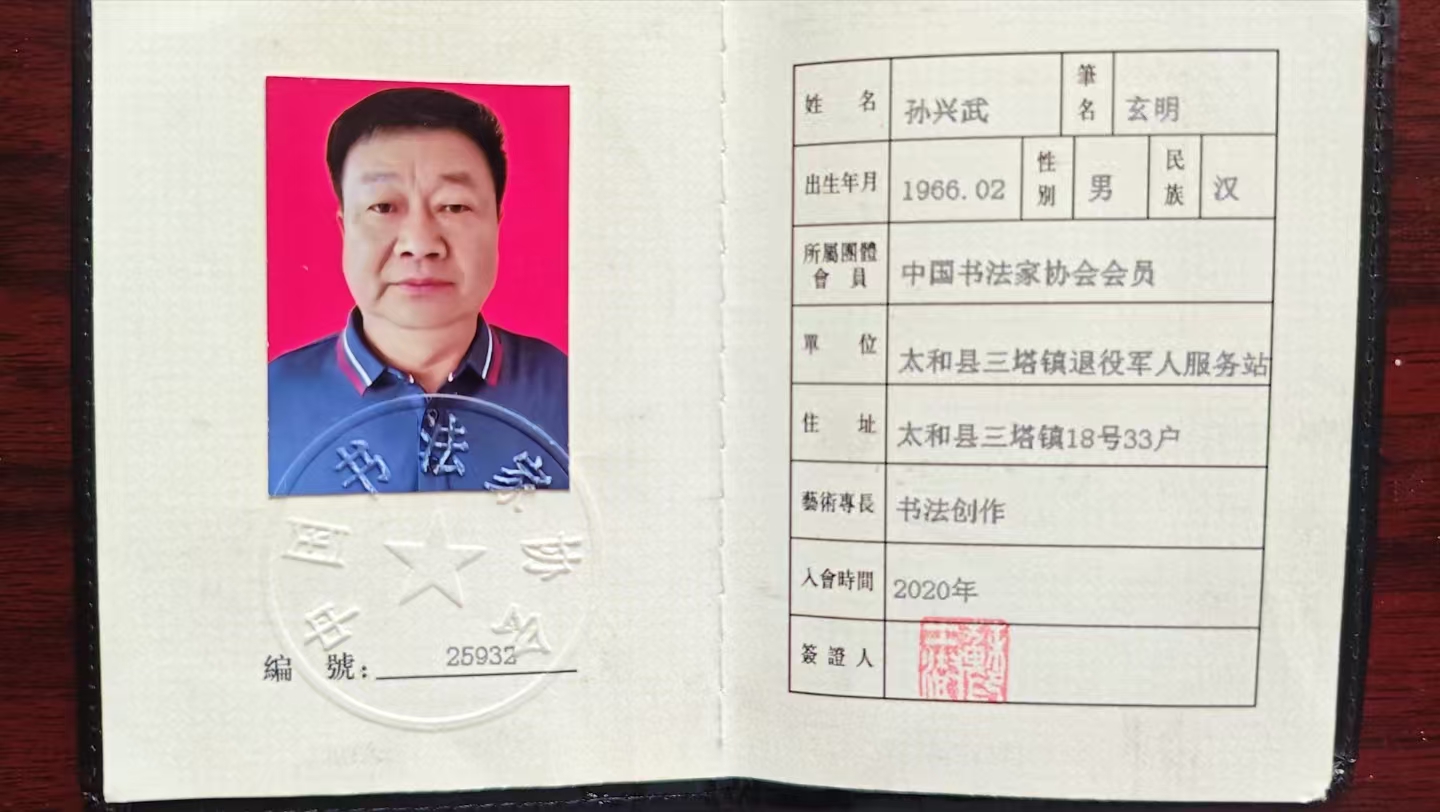 中国书法家协会
編 號: 25932
姓 名 孙兴武 筆名 玄明
出生年月 1966.02 性別 男 民族 汉
所屬團體會員 中国书法家协会会员
單 位 太和县三塔镇退役军人服务站
住 址 太和县三塔镇18号33户
藝術專長 书法创作
入會時間 2020年
簽證人